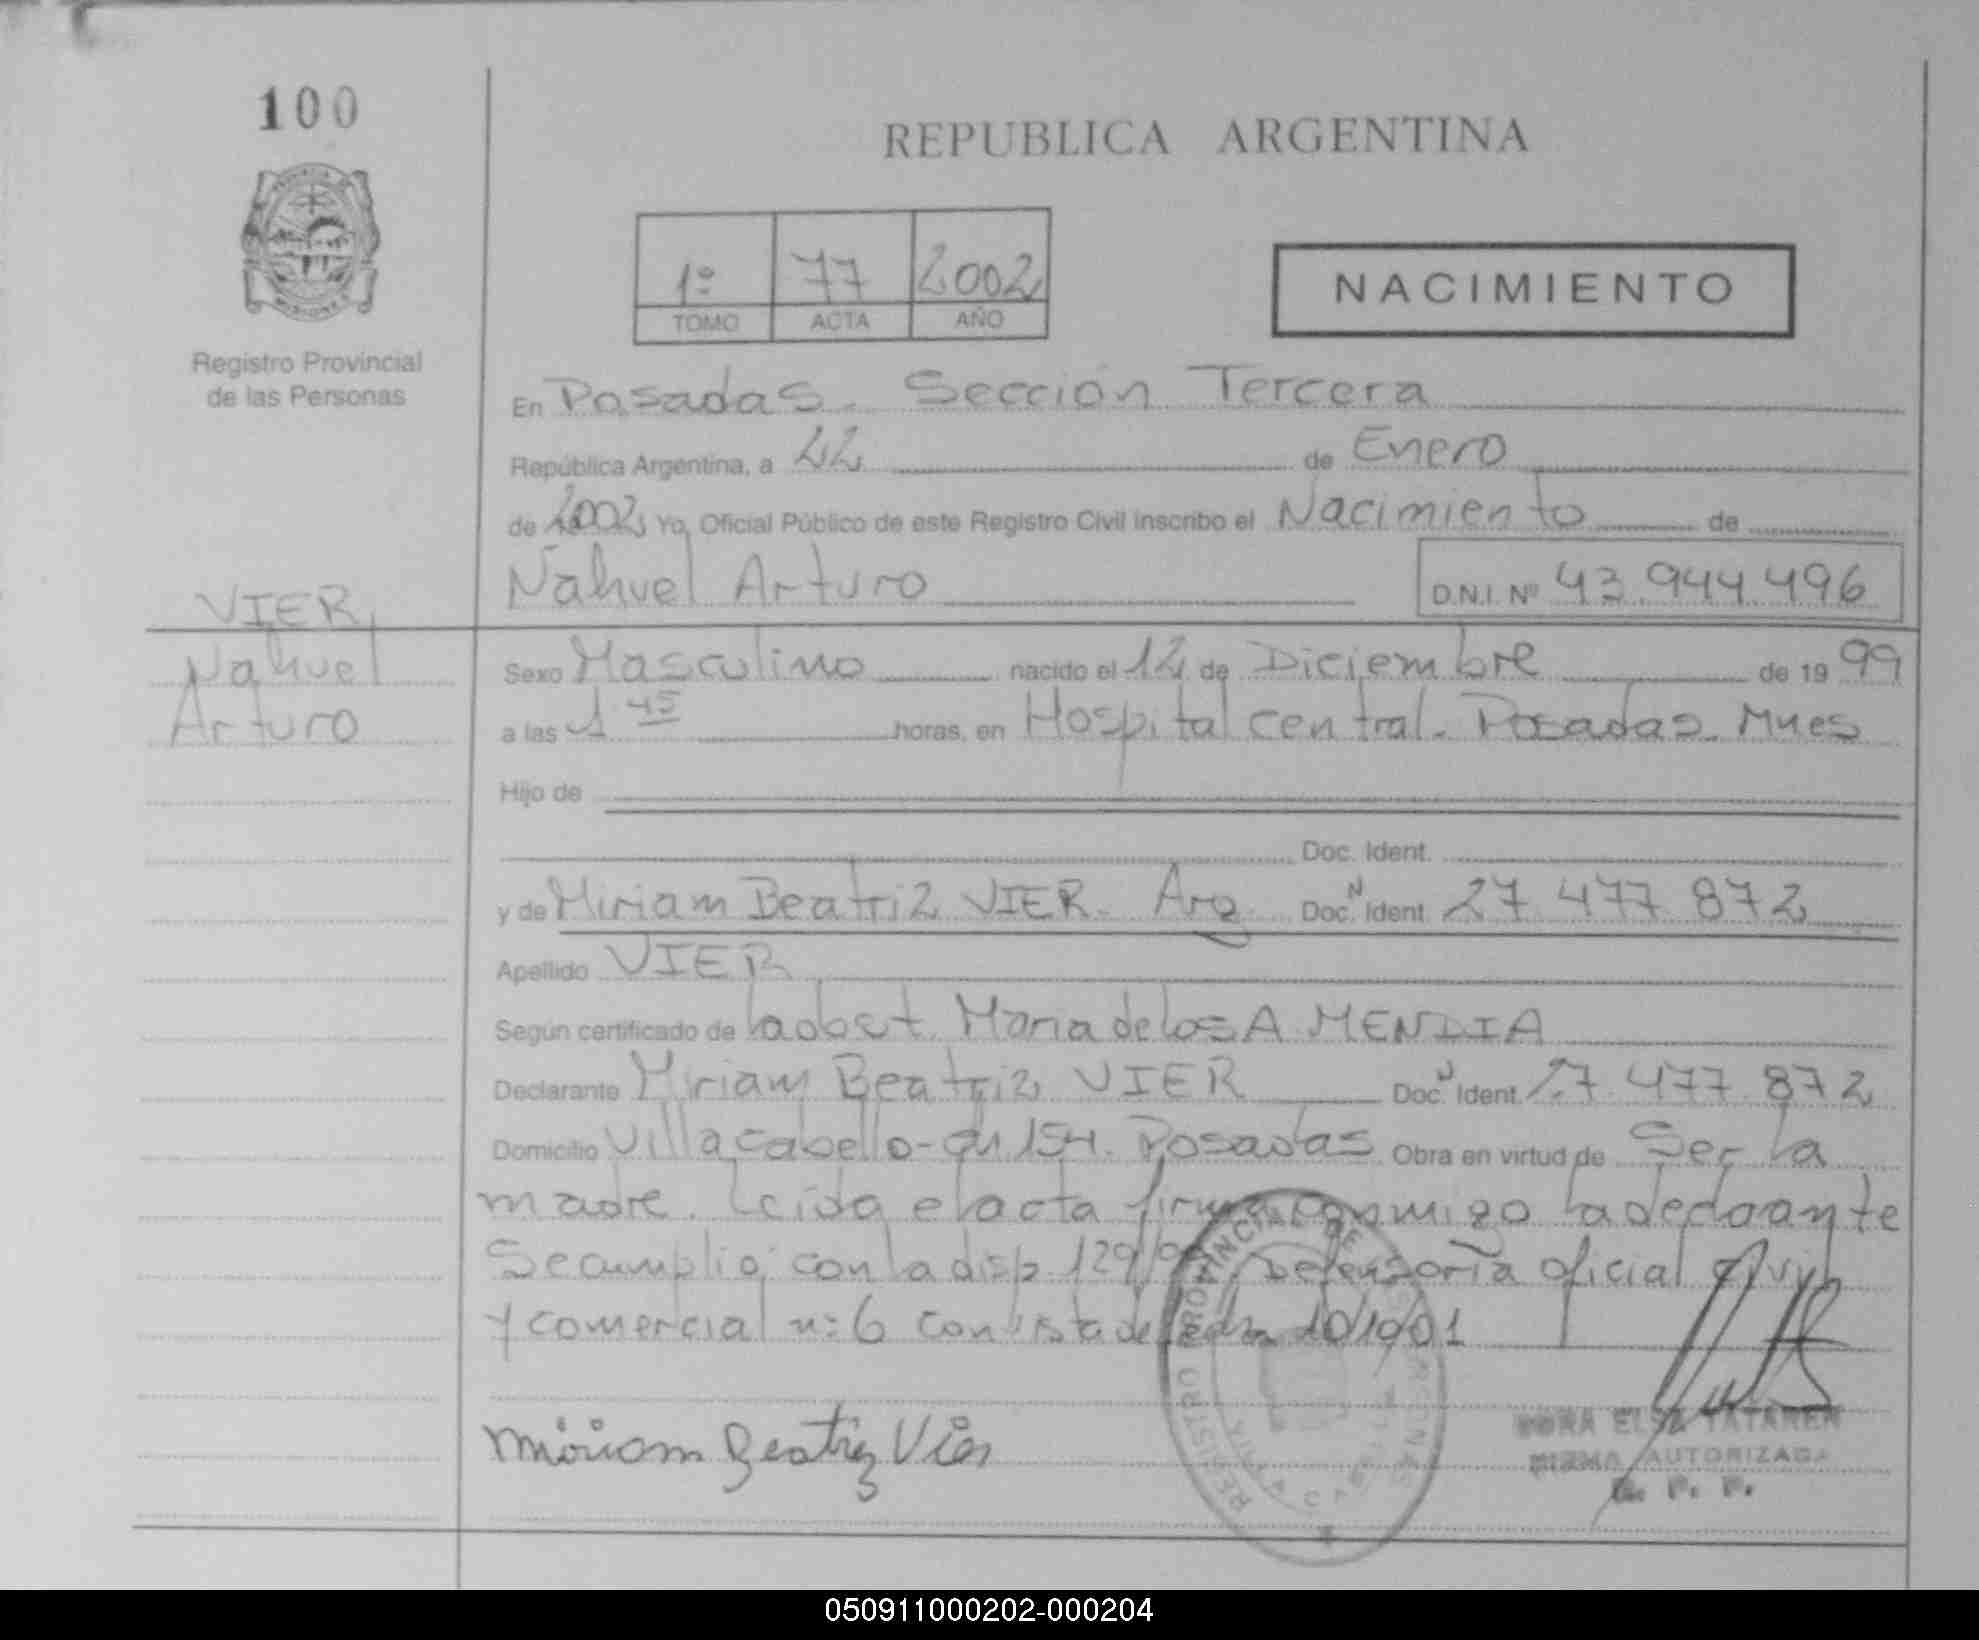 100
REPUBLICA ARGENTINA
1º 77 2002
TOMO ACTA AÑO
NACIMIENTO
Registro Provincial
de las Personas
En Posadas. Sección Tercera
República Argentina, a 22 de Enero
de 2002 Yo, Oficial Público de este Registro Civil inscribo el Nacimiento de
Nahuel Arturo D.N.I. Nº 43.944.496
VIER,
Nahuel
Arturo
Sexo Masculino nacido el 12 de Diciembre de 19 99
a las 1 45 horas, en Hospital central. Posadas. Mnes
Hijo de
Doc. Ident.
y de Miriam Beatriz VIER. Arg. Doc. N Ident 27 477 872
Apellido VIER
Según certificado de la obst. Maria de los A MENDIA
Declarante Miriam Beatriz VIER Doc. N Ident. 27 477 872
Domicilio Villa cabello - ch 154. Posadas Obra en virtud de Ser la
madre. Leida el acta firma conmigo la declarante
Se cumplió con la disp 129/ Defensoria oficial civil
y comercial n: 6 con vista de fecha 10/10/01
Miriam Beatriz Vier
REGISTRO PROVINCIAL DE LAS PERSONAS
ELSA TATAREN
FIRMA AUTORIZADA
R. P. P.
050911000202-000204